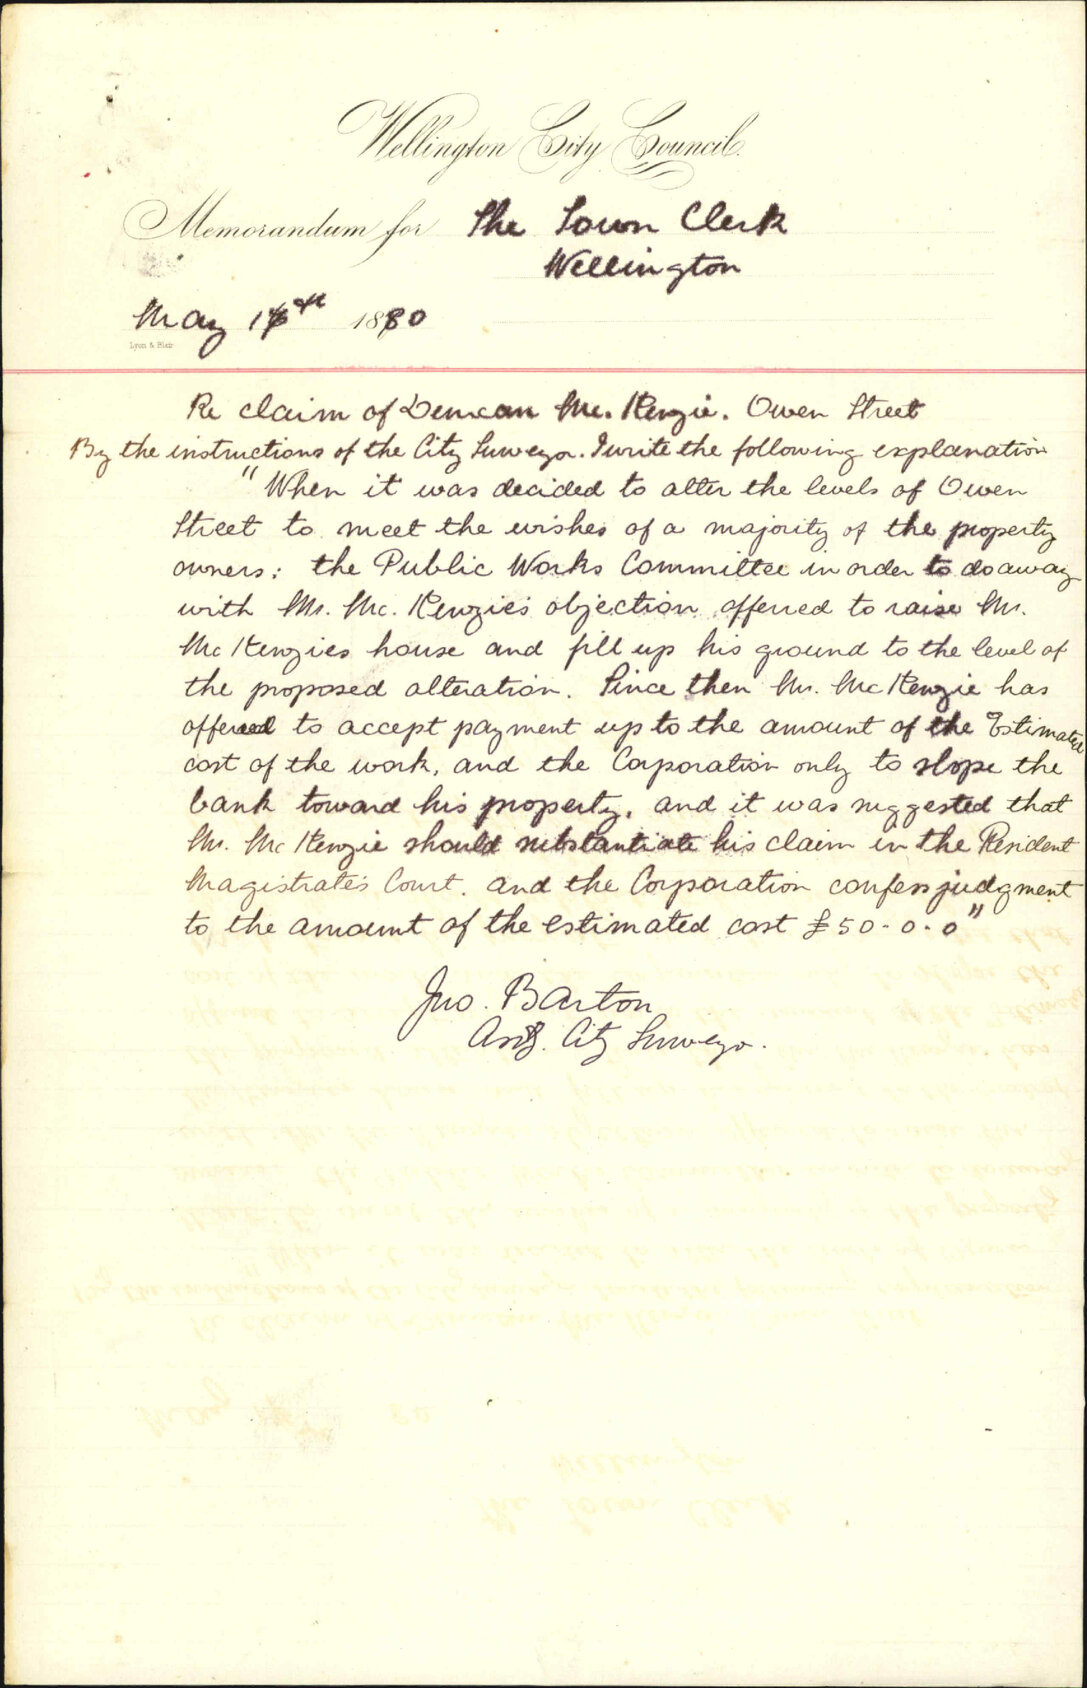 Wellington City Council.
Memorandum for The Town Clerk
Wellington
May th 1880
Lyon & Blair
Re claim of Duncan Mc. Kenzie. Owen Street
By the instructions of the City Surveyor. I write the following explanation
"When it was decided to alter the levels of Owen
Street to meet the wishes of a majority of the property
owners; the Public Works Committee in order to do away
with Mr. Mc. Kenzie's objection offerred to raise Mr.
Mc Kenzies house and fill up his ground to the level of
the proposed alteration. Since then Mr. Mc Kenzie has
offered to accept payment up to the amount of the Estimated
cost of the work, and the Corporation only to slope the
bank toward his property, and it was suggested that
Mr. Mc Kenzie should substantiate his claim in the Resident
Magistrate's Court. and the Corporation confess judgment
to the amount of the estimated cost £50.0.0"
Jno. Barton
Asst. City Surveyor.